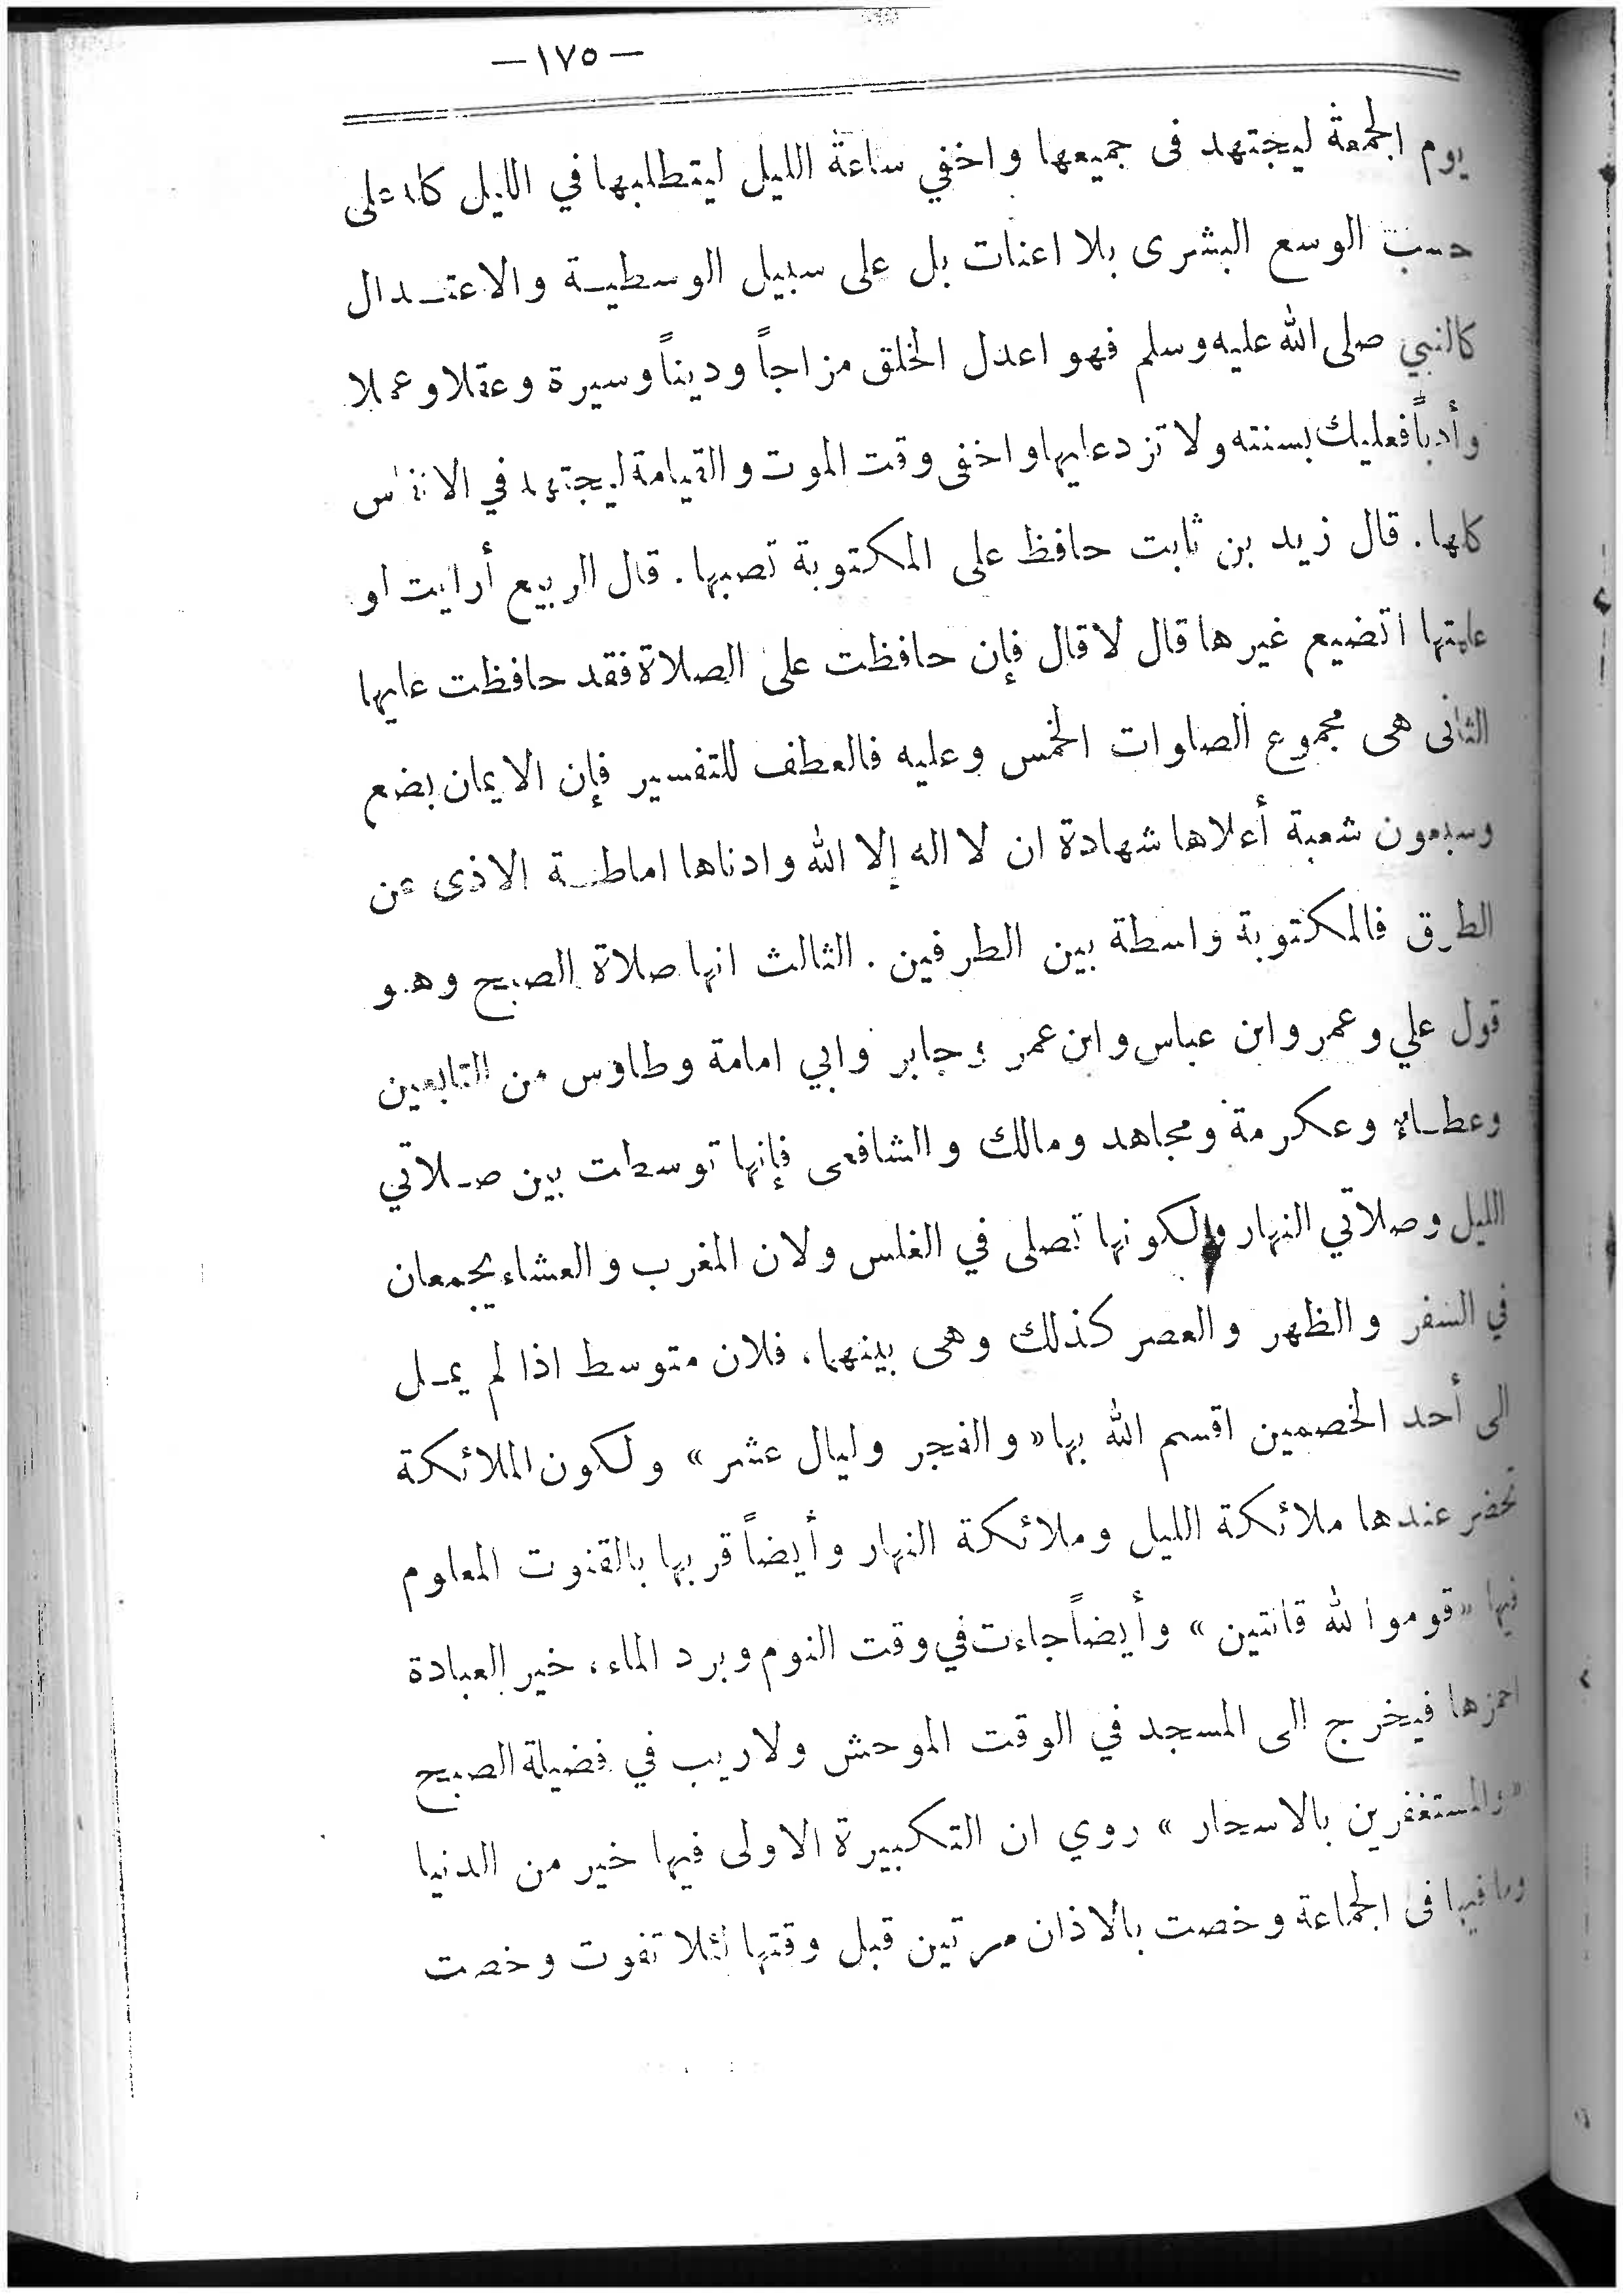 —١٧٥—
يوم الجمعة ليجتهد فى جميعها واخفي ساعة الليل ليتطلبها في الليل كله على
حسب الوسع البشرى بلا اعنات بل على سبيل الوسطية والاعتدال
كالنبي صلى الله عليه وسلم فهو اعدل الخلق مزاجاً وديناً وسيرة وعقلا وعملا
وأدباً فعليك بسنته ولا تزد عليها واخفى وقت الموت والقيامة ليجتهد في الانفاس
كلها. قال زيد بن ثابت حافظ على المكتوبة تصبها. قال الربيع أرايت لو
علمتها اتضيع غيرها قال لا قال فإن حافظت على الصلاة فقد حافظت عليها
الثانى هى مجموع الصلوات الخمس وعليه فالعطف للتفسير فإن الايمان بضع
وسبعون شعبة أعلاها شهادة ان لا اله إلا الله وادناها اماطة الاذى عن
الطرق فالمكتوبة واسطة بين الطرفين. الثالث انها صلاة الصبح وهو
قول علي وعمر وابن عباس وابن عمر وجابر وابي امامة وطاوس من التابعين
وعطاء وعكرمة ومجاهد ومالك والشافعى فإنها توسطت بين صلاتي
الليل وصلاتي النهار ولكونها تصلى في الغلس ولان المغرب والعشاء يجمعان
في السفر والظهر والعصر كذلك وهى بينهما، فلان متوسط اذا لم يمل
الى أحد الخصمين اقسم الله بها «والفجر وليال عشر» ولكون الملائكة
تحضر عندها ملائكة الليل وملائكة النهار وأيضاً قربها بالقنوت المعلوم
فيها «قوموا لله قانتين» وأيضاً جاءت في وقت النوم وبرد الماء، خير العبادة
احمزها فيخرج الى المسجد في الوقت الموحش ولاريب في فضيلة الصبح
«والمستغفرين بالاسحار» روي ان التكبيرة الاولى فيها خير من الدنيا
وما فيها فى الجماعة وخصت بالاذان مرتين قبل وقتها لئلا تفوت وخصت